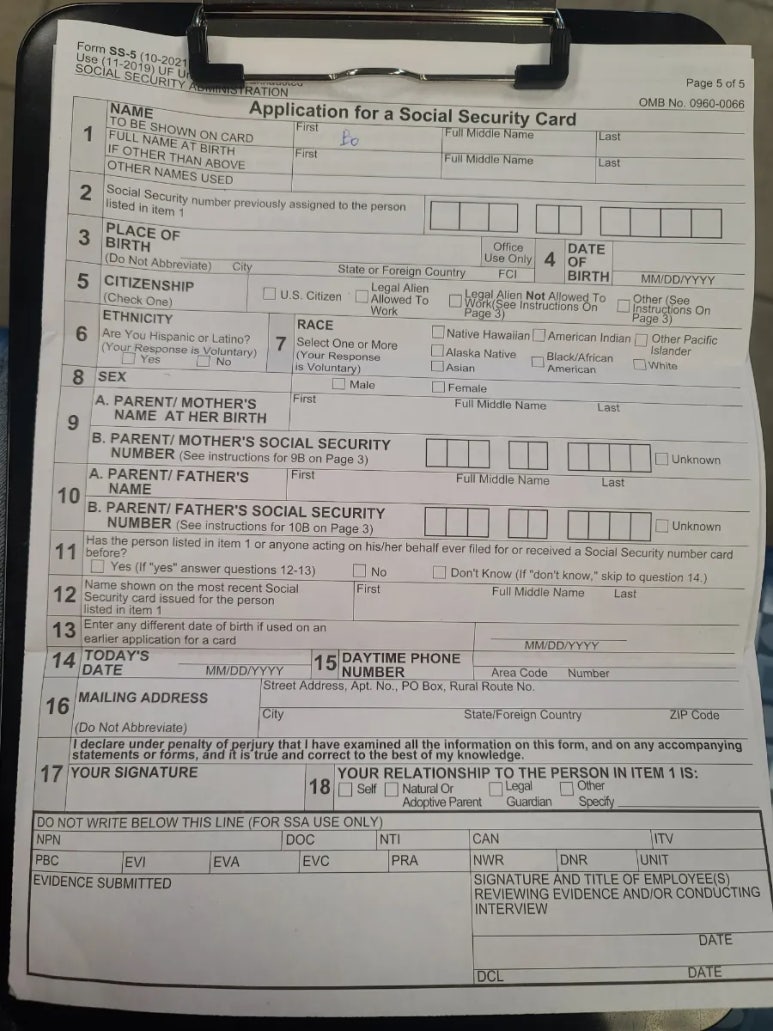 Form SS-5 (10-2021
Use (11-2019) UF Un
SOCIAL SECURITY ADMINISTRATION
Page 5 of 5
OMB No. 0960-0066
Application for a Social Security Card
1 NAME
TO BE SHOWN ON CARD
First
Bo
Full Middle Name
Last
FULL NAME AT BIRTH
IF OTHER THAN ABOVE
First
Full Middle Name
Last
OTHER NAMES USED
2 Social Security number previously assigned to the person
listed in item 1
3 PLACE OF
BIRTH
(Do Not Abbreviate) City
State or Foreign Country
Office
Use Only
FCI
4 DATE
OF
BIRTH
MM/DD/YYYY
5 CITIZENSHIP
(Check One)
U.S. Citizen
Legal Alien
Allowed To
Work
Legal Alien Not Allowed To
Work(See Instructions On
Page 3)
Other (See
Instructions On
Page 3)
6 ETHNICITY
Are You Hispanic or Latino?
(Your Response is Voluntary)
Yes No
7 RACE
Select One or More
(Your Response
is Voluntary)
Native Hawaiian
Alaska Native
Asian
American Indian
Black/African
American
Other Pacific
Islander
White
8 SEX
Male Female
9 A. PARENT/ MOTHER'S
NAME AT HER BIRTH
First
Full Middle Name
Last
B. PARENT/ MOTHER'S SOCIAL SECURITY
NUMBER (See instructions for 9B on Page 3)
Unknown
10 A. PARENT/ FATHER'S
NAME
First
Full Middle Name
Last
B. PARENT/ FATHER'S SOCIAL SECURITY
NUMBER (See instructions for 10B on Page 3)
Unknown
11 Has the person listed in item 1 or anyone acting on his/her behalf ever filed for or received a Social Security number card
before?
Yes (If "yes" answer questions 12-13) No Don't Know (If "don't know," skip to question 14.)
12 Name shown on the most recent Social
Security card issued for the person
listed in item 1
First
Full Middle Name
Last
13 Enter any different date of birth if used on an
earlier application for a card
MM/DD/YYYY
14 TODAY'S
DATE
MM/DD/YYYY
15 DAYTIME PHONE
NUMBER
Area Code Number
16 MAILING ADDRESS
(Do Not Abbreviate)
Street Address, Apt. No., PO Box, Rural Route No.
City State/Foreign Country ZIP Code
I declare under penalty of perjury that I have examined all the information on this form, and on any accompanying
statements or forms, and it is true and correct to the best of my knowledge.
17 YOUR SIGNATURE
18 YOUR RELATIONSHIP TO THE PERSON IN ITEM 1 IS:
Self
Natural Or
Adoptive Parent
Legal
Guardian
Other
Specify
DO NOT WRITE BELOW THIS LINE (FOR SSA USE ONLY)
NPN DOC NTI CAN ITV
PBC EVI EVA EVC PRA NWR DNR UNIT
EVIDENCE SUBMITTED
SIGNATURE AND TITLE OF EMPLOYEE(S)
REVIEWING EVIDENCE AND/OR CONDUCTING
INTERVIEW
DATE
DCL DATE